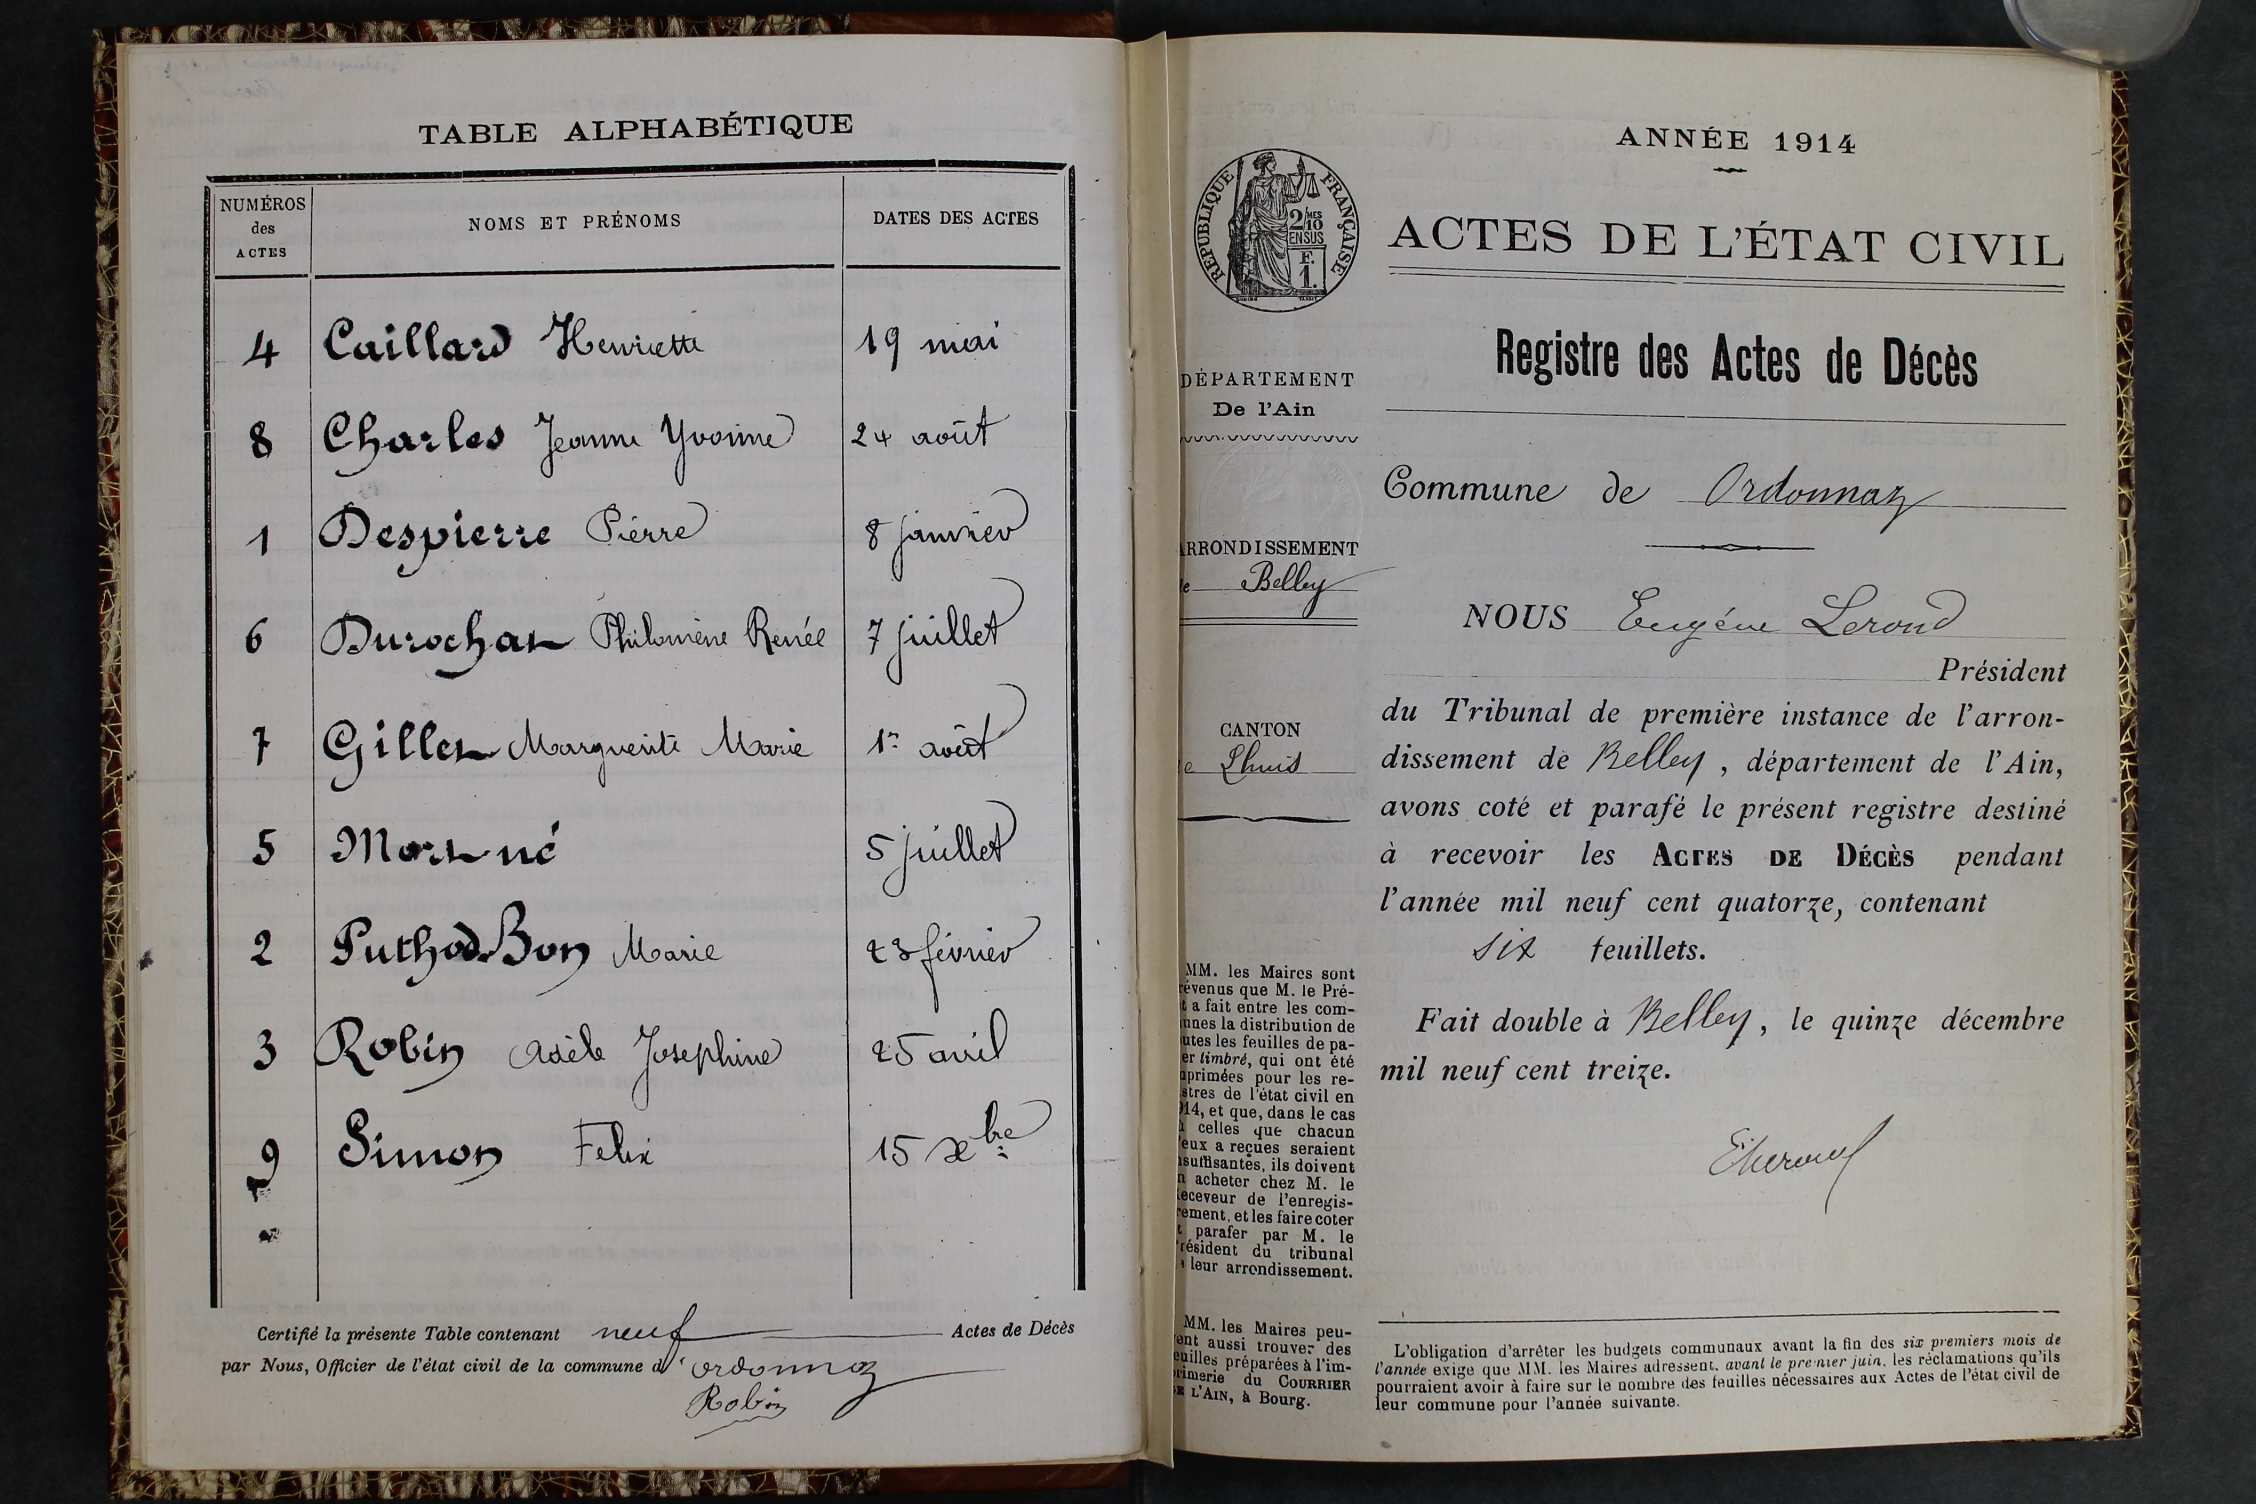 TABLE ALPHABÉTIQUE
NUMÉROS des ACTES
NOMS ET PRÉNOMS
DATES DES ACTES
4 Caillard Henriette 19 mai
8 Charles Jeanne Yvonne 24 août
1 Despierre Pierre 8 janvier
6 Durochat Philomène Renée 7 juillet
7 Gillet Marguerite Marie 1er août
5 Mort-né 5 juillet
2 Puthod-Bon Marie 23 février
3 Robin Adèle Josephine 25 avril
9 Simon Felix 15 xbre
Certifié la présente Table contenant neuf Actes de Décès
par Nous, Officier de l'état civil de la commune d'ordonnaz
Robin
ANNÉE 1914
RÉPUBLIQUE FRANÇAISE
2/10
MES
EN SUS
F.
1.
ACTES DE L'ÉTAT CIVIL
Registre des Actes de Décès
DÉPARTEMENT
De l'Ain
ARRONDISSEMENT
de Belley
CANTON
de Lhuis
Commune de Ordonnaz
NOUS Eugène Lerond
Président
du Tribunal de première instance de l'arron-
dissement de Belley, département de l'Ain,
avons coté et parafé le présent registre destiné
à recevoir les ACTES DE DÉCÈS pendant
l'année mil neuf cent quatorze, contenant
six feuillets.
Fait double à Belley, le quinze décembre
mil neuf cent treize.
MM. les Maires sont
révenus que M. le Pré-
t a fait entre les com-
unes la distribution de
utes les feuilles de pa-
er timbré, qui ont été
mprimées pour les re-
stres de l'état civil en
914, et que, dans le cas
celles que chacun
'eux a reçues seraient
nsuffisantes, ils doivent
n acheter chez M. le
eceveur de l'enregis-
rement, et les faire coter
t parafer par M. le
résident du tribunal
leur arrondissement.
MM. les Maires peu-
ent aussi trouver des
euilles préparées à l'im-
rimerie du COURRIER
DE L'AIN, à Bourg.
L'obligation d'arrêter les budgets communaux avant la fin des six premiers mois de
l'année exige que MM. les Maires adressent, avant le premier juin, les réclamations qu'ils
pourraient avoir à faire sur le nombre des feuilles nécessaires aux Actes de l'état civil de
leur commune pour l'année suivante.